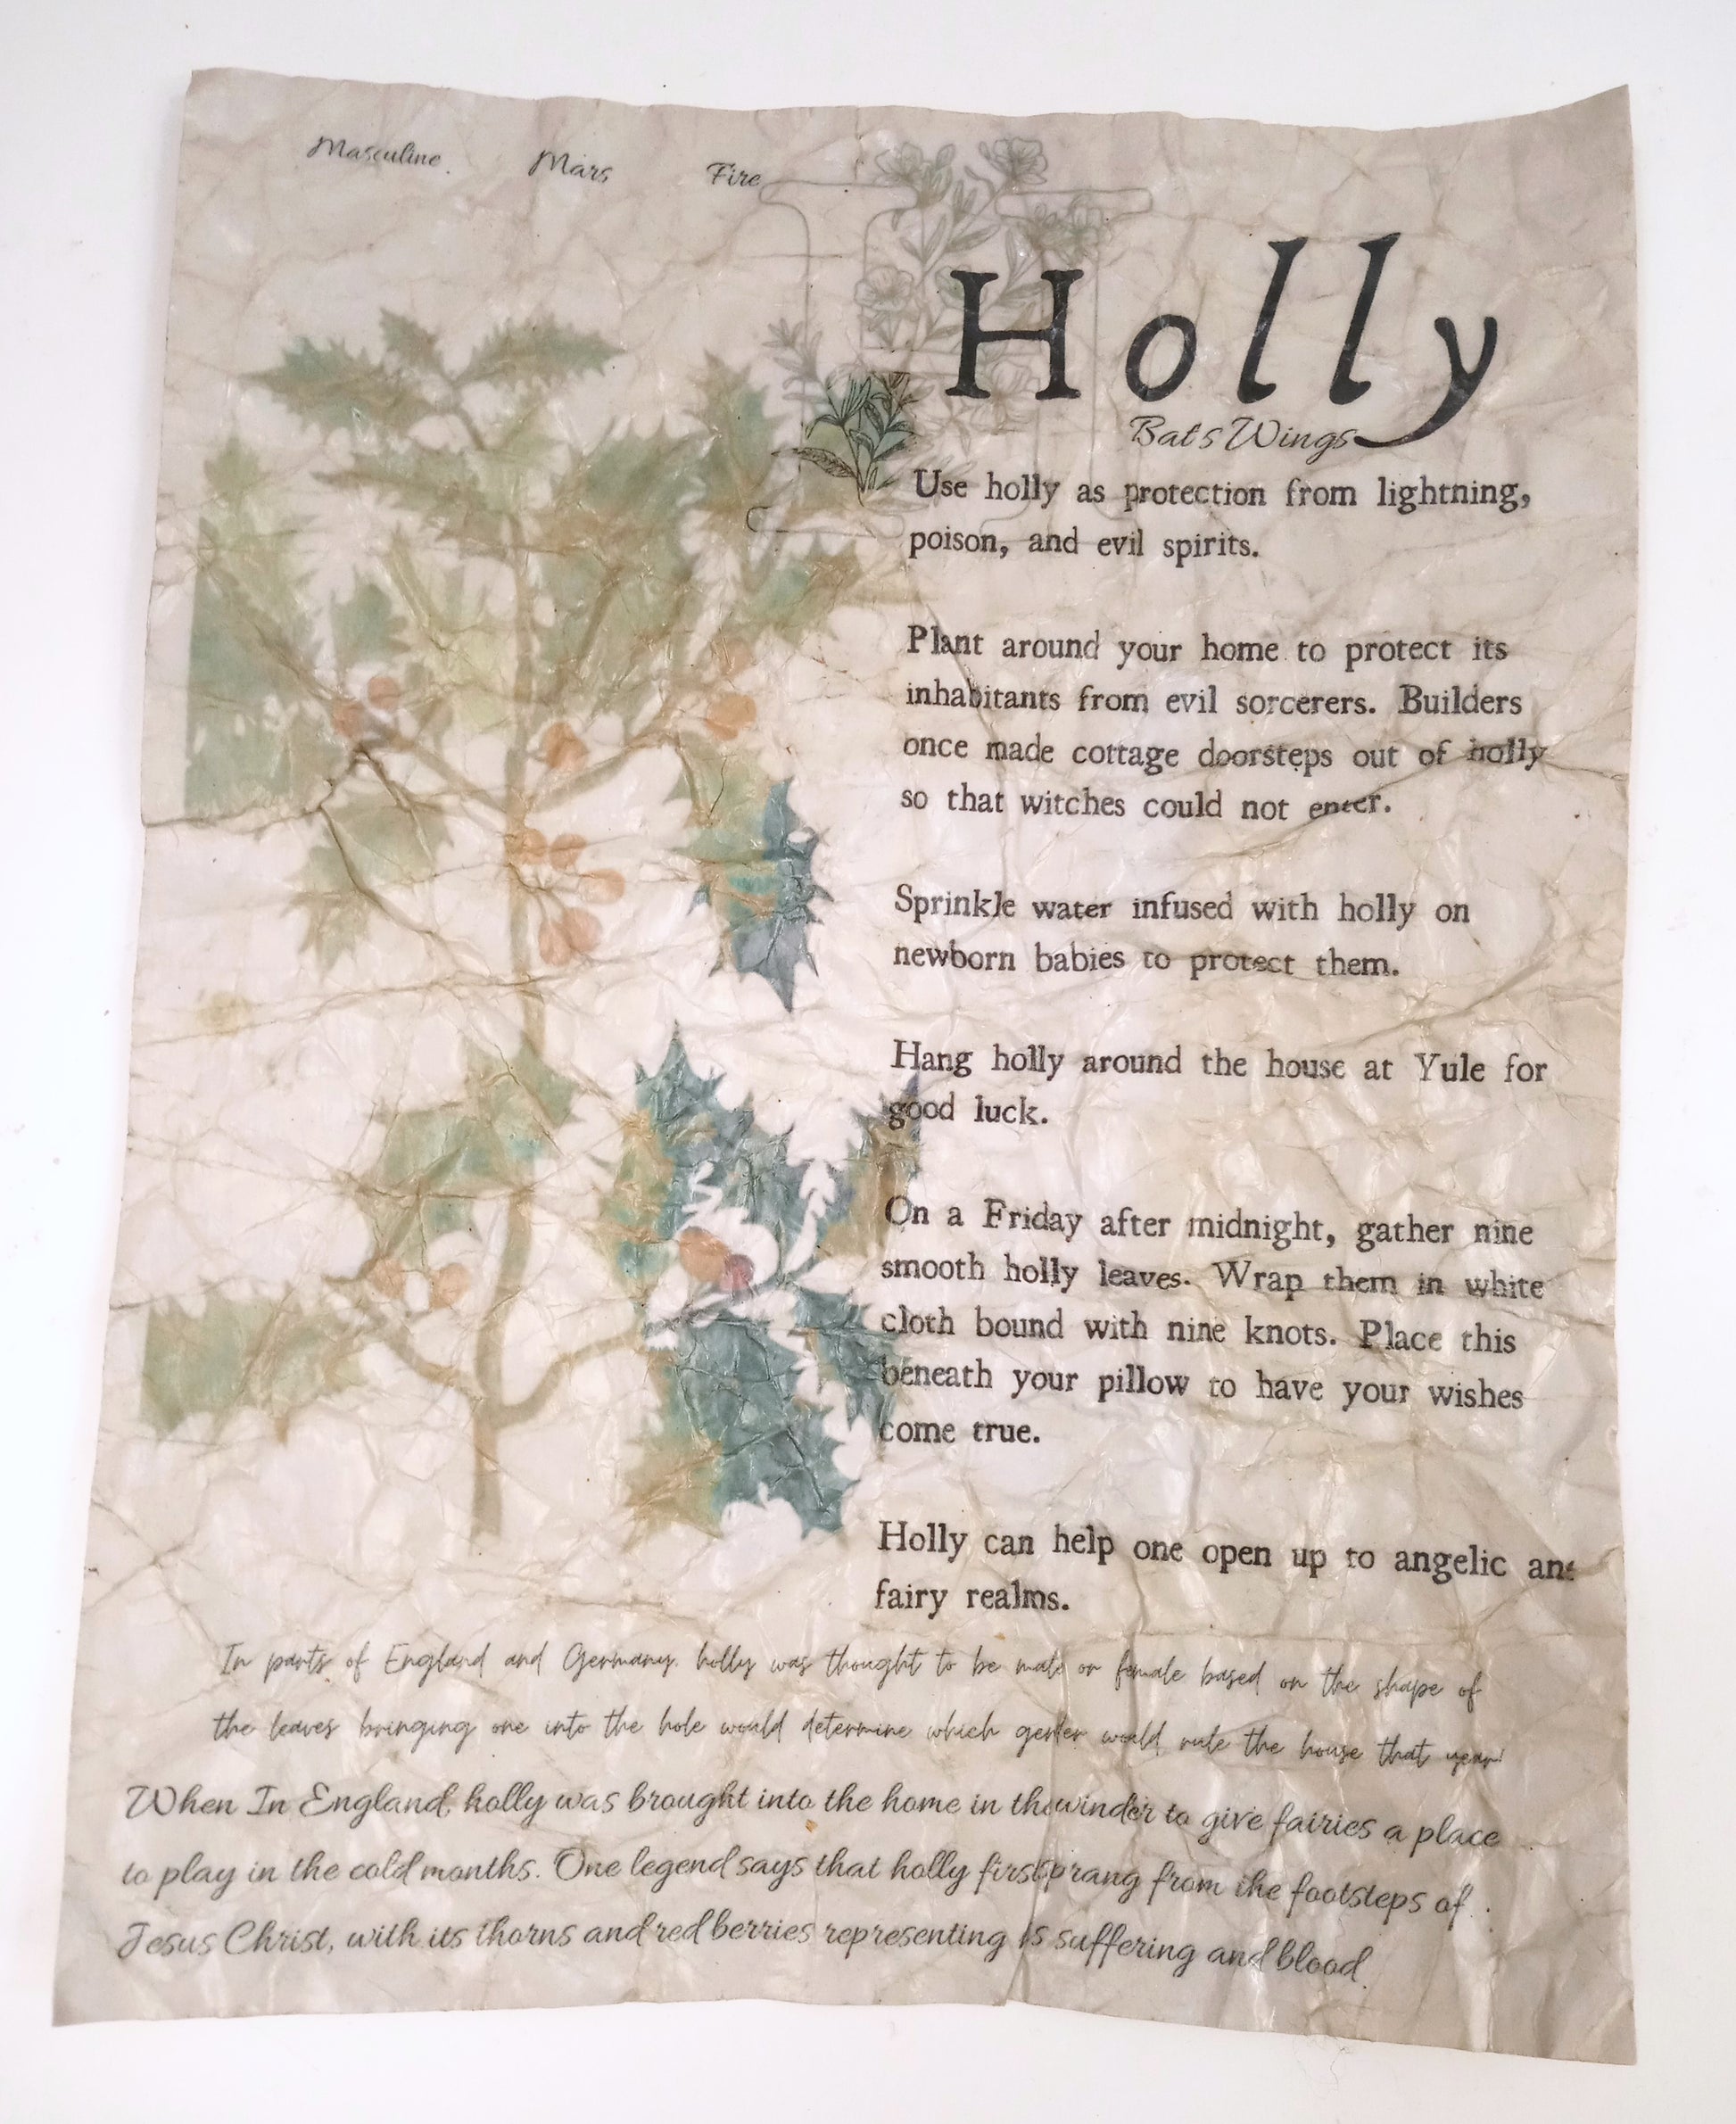 Masculine. Mars Fire
Holly
Bats Wings
Use holly as protection from lightning,
poison, and evil spirits.
Plant around your home to protect its
inhabitants from evil sorcerers. Builders
once made cottage doorsteps out of holly
so that witches could not enter.
Sprinkle water infused with holly on
newborn babies to protect them.
Hang holly around the house at Yule for
good luck.
On a Friday after midnight, gather nine
smooth holly leaves. Wrap them in white
cloth bound with nine knots. Place this
beneath your pillow to have your wishes
come true.
Holly can help one open up to angelic
fairy realms.
In parts of England and Germany, holly was thought to be male or female based on the shape of
the leaves bringing one into the hole would determine which gender would rule the house that year!
When In England, holly was brought into the home in the winder to give fairies a place
to play in the cold months. One legend says that holly first sprang from the footsteps of
Jesus Christ, with its thorns and red berries representing is suffering and blood.